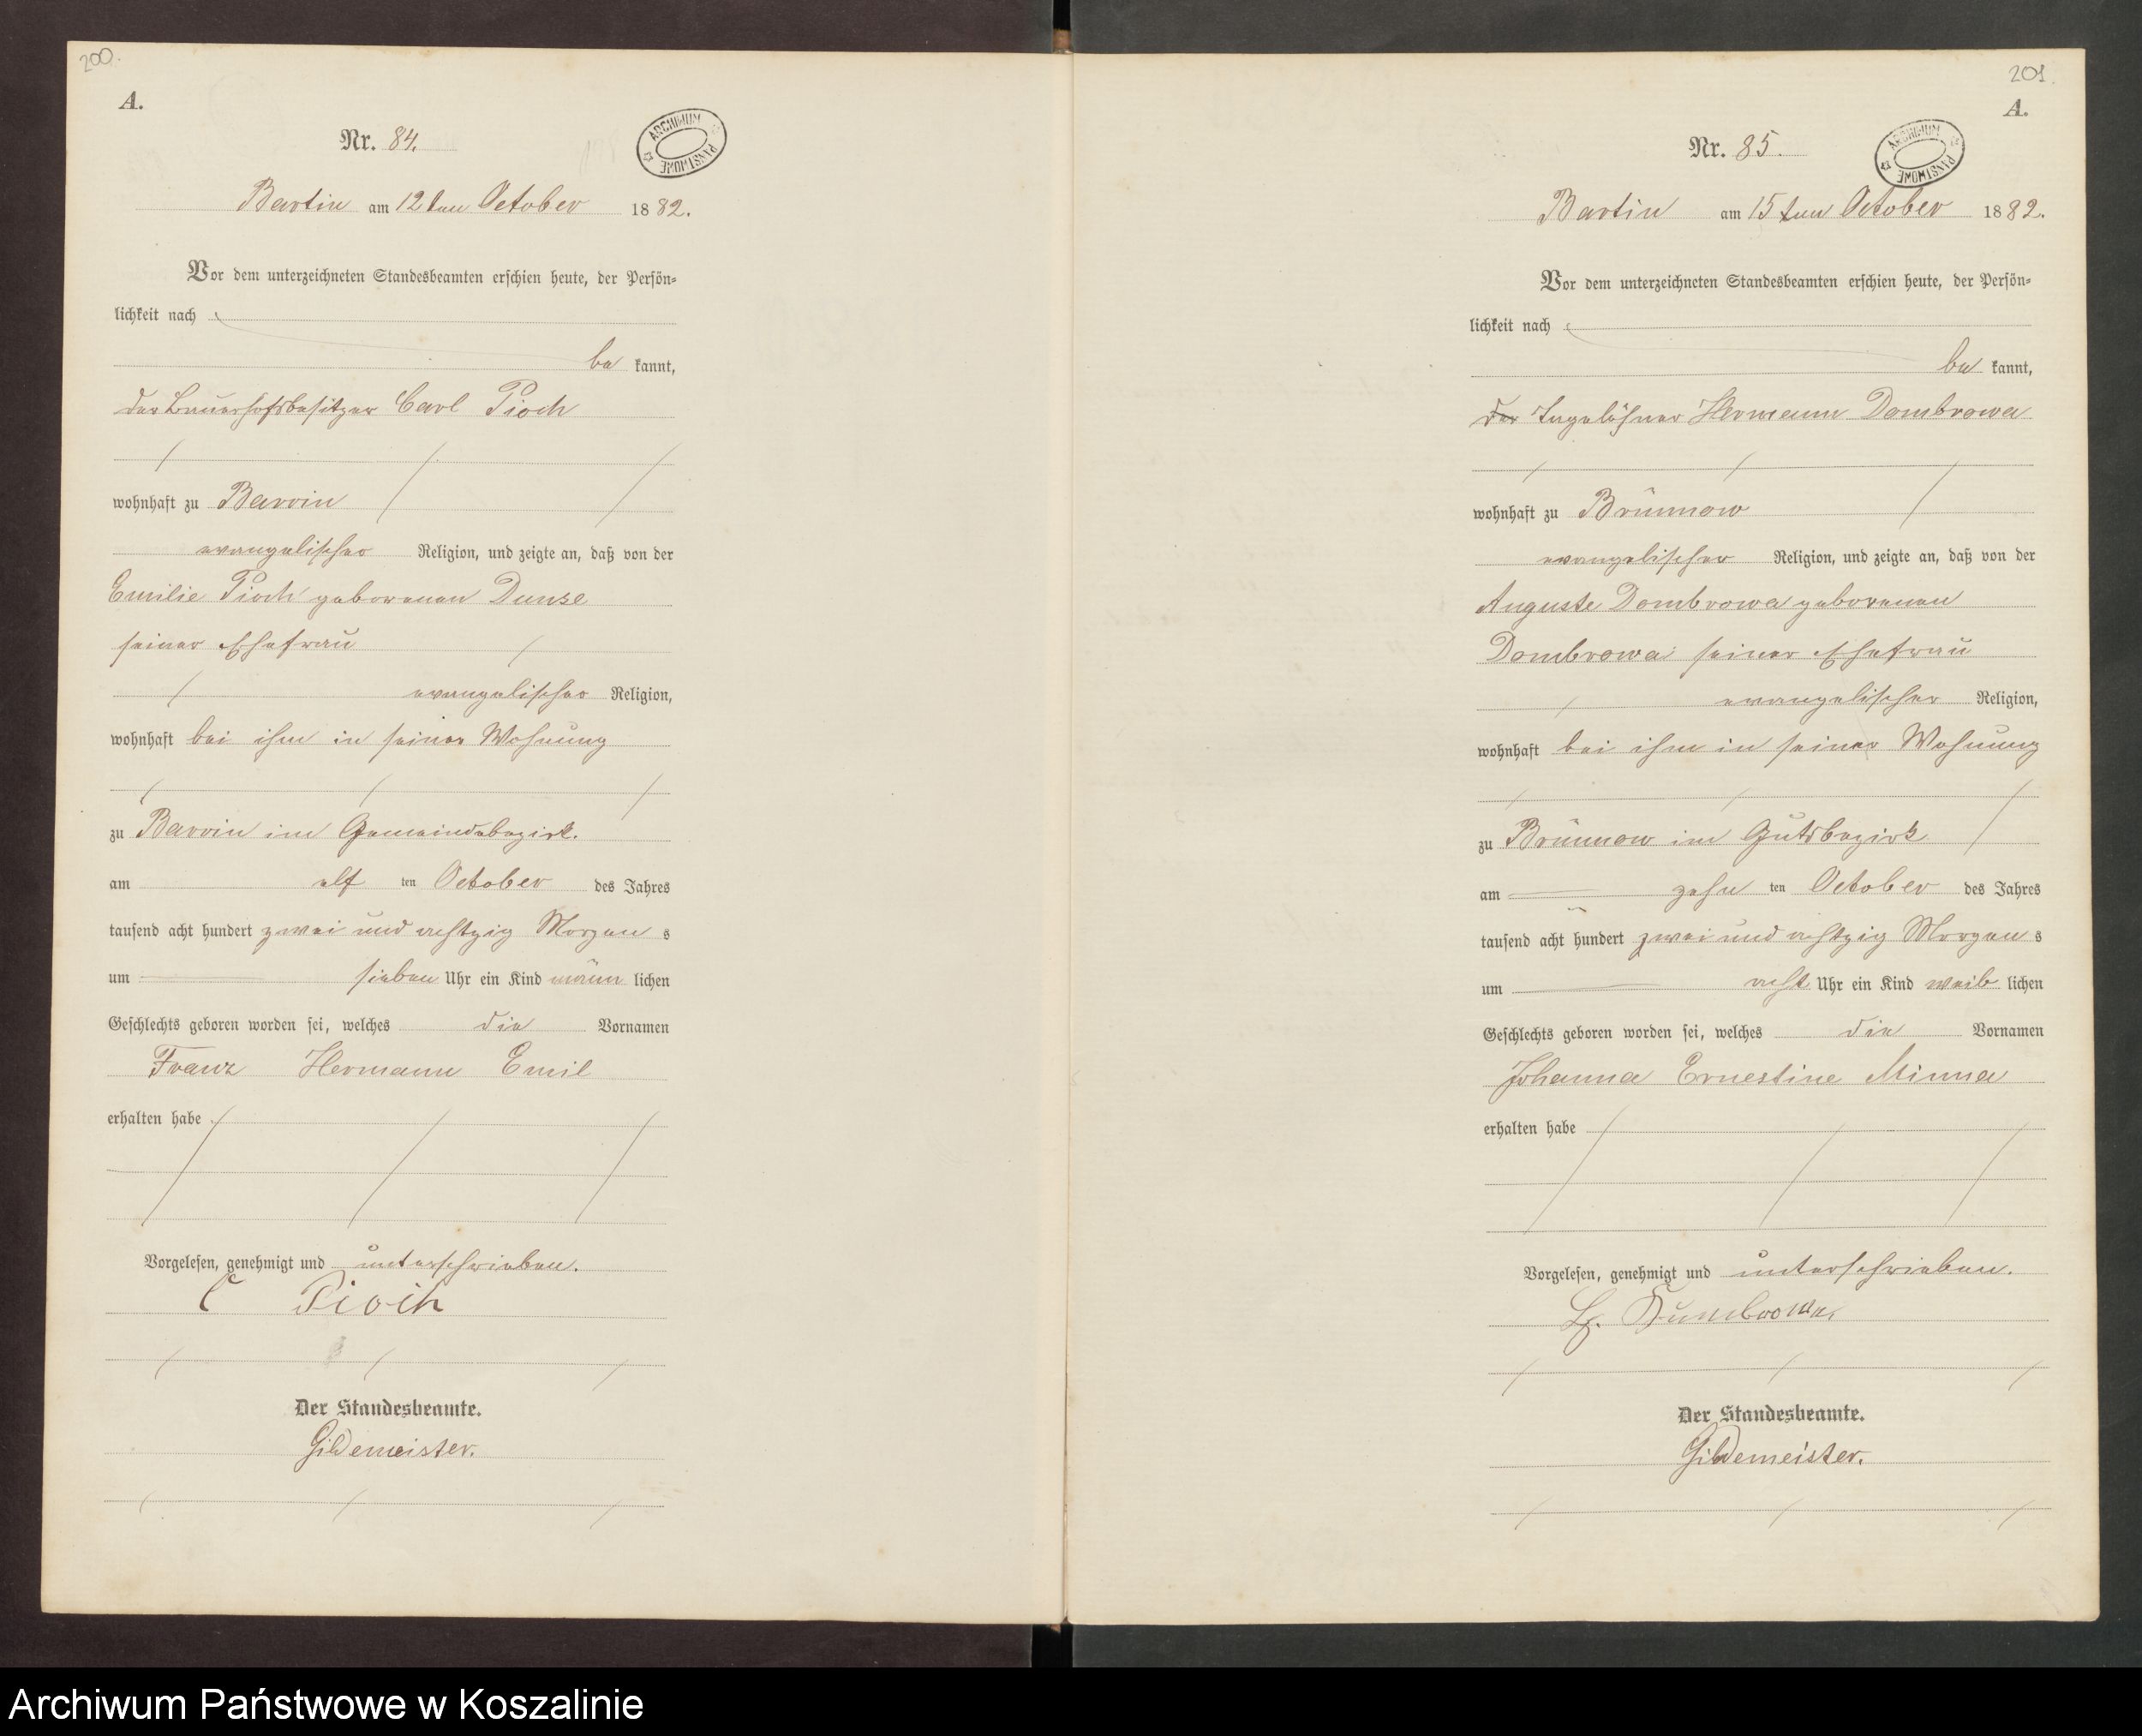 200.
A.
Nr. 84.
ARCHIWUM PAŃSTWOWE
Bartin am 12ten October 1882.
Vor dem unterzeichneten Standesbeamten erschien heute, der Persön-
lichkeit nach
be kannt,
der Bauerhofsbesitzer Carl Pioch
wohnhaft zu Barvin
evangelischer Religion, und zeigte an, daß von der
Emilie Pioch geborenen Dunse
seiner Ehefrau
evangelischer Religion,
wohnhaft bei ihm in seiner Wohnung
zu Barvin im Gemeindebezirk.
am elf ten October des Jahres
tausend acht hundert zwei und achtzig Morgen s
um sieben Uhr ein Kind männ lichen
Geschlechts geboren worden sei, welches die Vornamen
Franz Hermann Emil
erhalten habe
Vorgelesen, genehmigt und unterschrieben.
C Pioch
Der Standesbeamte.
Gildemeister.
201.
A.
Nr. 85.
ARCHIWUM PAŃSTWOWE
Bartin am 15ten October 1882.
Vor dem unterzeichneten Standesbeamten erschien heute, der Persön-
lichkeit nach
be kannt,
der Tagelöhner Hermann Dombrowa
wohnhaft zu Brünnow
evangelischer Religion, und zeigte an, daß von der
Auguste Dombrowa geborenen
Dombrowa seiner Ehefrau
evangelischer Religion,
wohnhaft bei ihm in seiner Wohnung
zu Brünnow im Gutsbezirk
am zehn ten October des Jahres
tausend acht hundert zwei und achtzig Morgen s
um acht Uhr ein Kind weib lichen
Geschlechts geboren worden sei, welches die Vornamen
Johanna Ernestine Minna
erhalten habe
Vorgelesen, genehmigt und unterschrieben.
H. Dumbrowa
Der Standesbeamte.
Gildemeister.
Archiwum Państwowe w Koszalinie